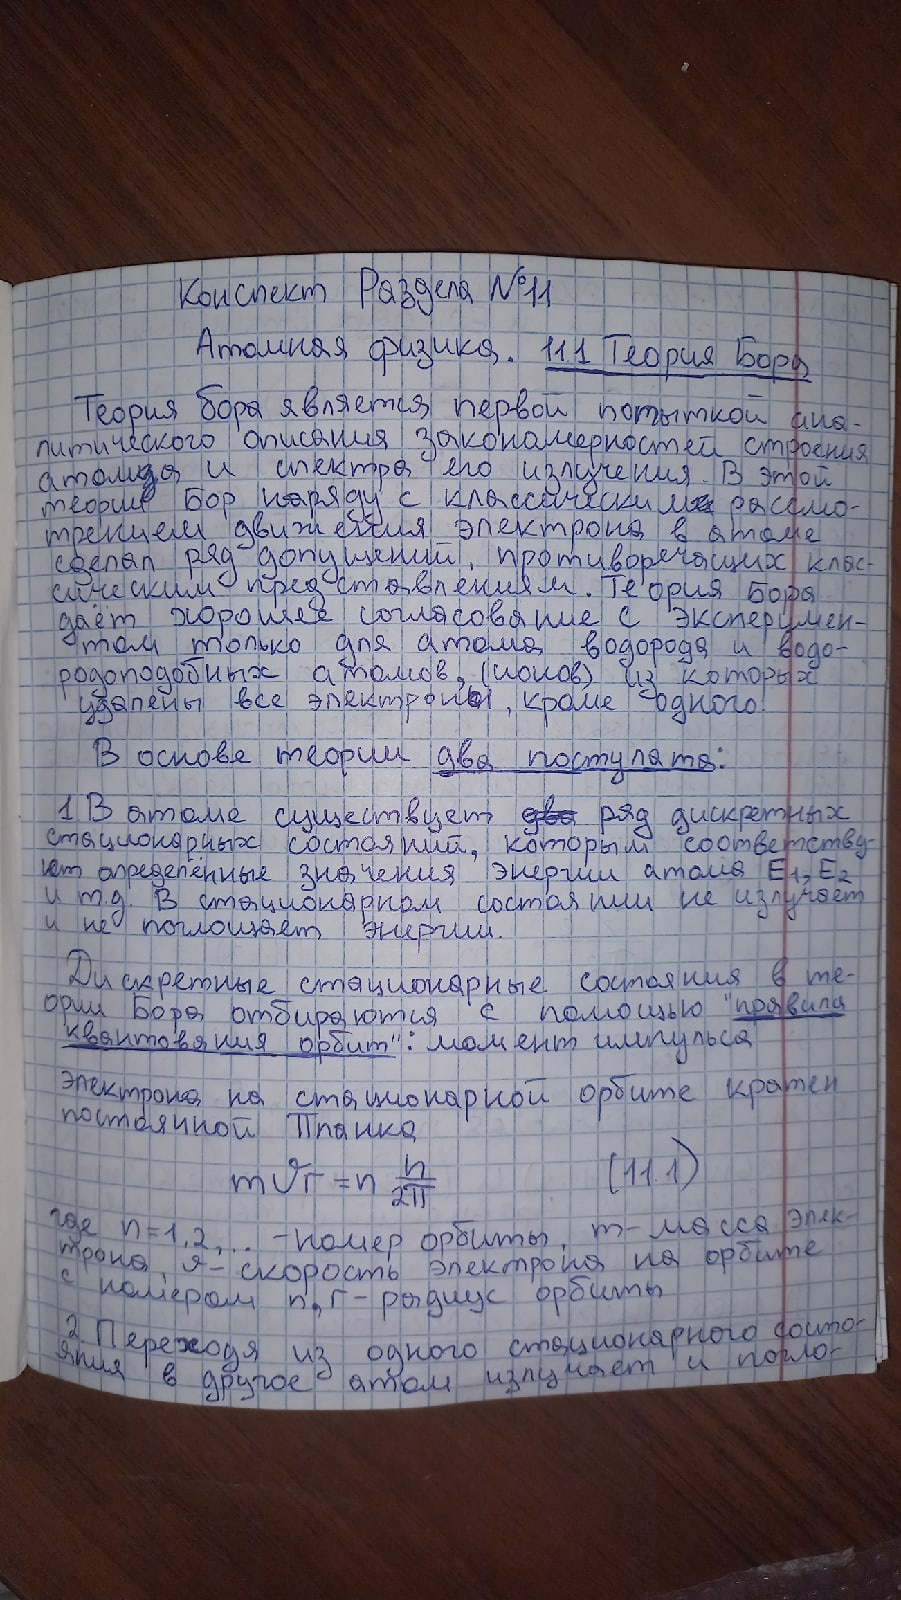 Конспект Раздела №11
Атомная физика. 11.1 Теория Бора
Теория бора является первой попыткой ана-
литического описания закономерностей строения
атома и спектра его излучения. В этой
теории Бор наряду с классическим рассмо-
трением движения электрона в атоме
сделал ряд допущений, противоречащих клас-
сическим представлениям. Теория Бора
даёт хорошее согласование с эксперимен-
том только для атома водорода и водо-
родоподобных атомов, (ионов) из которых
удалены все электроны, кроме одного.
В основе теории два постулата:
1 В атоме существует два ряд дискретных
стационарных состояний, которым соответству-
ют определённые значения энергии атома E₁, E₂
и т.д. В стационарном состоянии не излучает
и не поглощает энергии.
Дискретные стационарные состояния в те-
ории Бора отбираются с помощью "правила
квантования орбит": момент импульса
электрона на стационарной орбите кратен
постоянной Планка
mϑr = n h/2π (11.1)
где n=1,2,... - номер орбиты, m- масса элек-
трона, ϑ- скорость электрона на орбите
с номером n, r- радиус орбиты
2. Переходя из одного стационарного состо-
яния в другое атом излучает и погло-